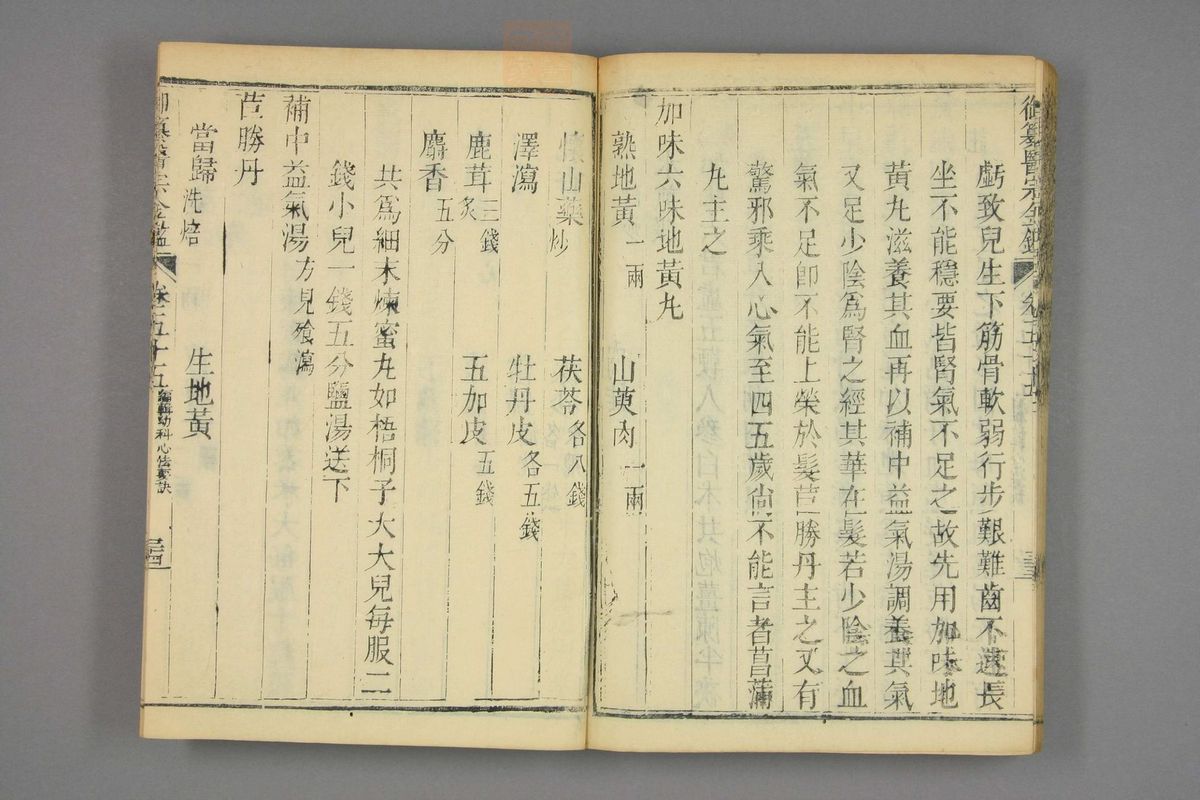 御纂醫宗金鑑 卷五十五
虧致兒生下筋骨軟弱行步艱難齒不速長
坐不能穩要皆腎氣不足之故先用加味地
黃丸滋養其血再以補中益氣湯調養其氣
又足少陰爲腎之經其華在髮若少陰之血
氣不足卽不能上榮於髮苣勝丹主之又有
驚邪乘入心氣至四五歲尙不能言者菖蒲
丸主之
加味六味地黃丸
熟地黃一兩 山萸肉一兩
懷山藥炒 茯苓各八錢
澤瀉 牡丹皮各五錢
鹿茸三錢炙 五加皮五錢
麝香五分
共爲細末煉蜜丸如梧桐子大大兒每服二
錢小兒一錢五分鹽湯送下
補中益氣湯方見飱瀉
苣勝丹
當歸洗焙 生地黃
御纂醫宗金鑑 卷五十五 編輯幼科心法要訣